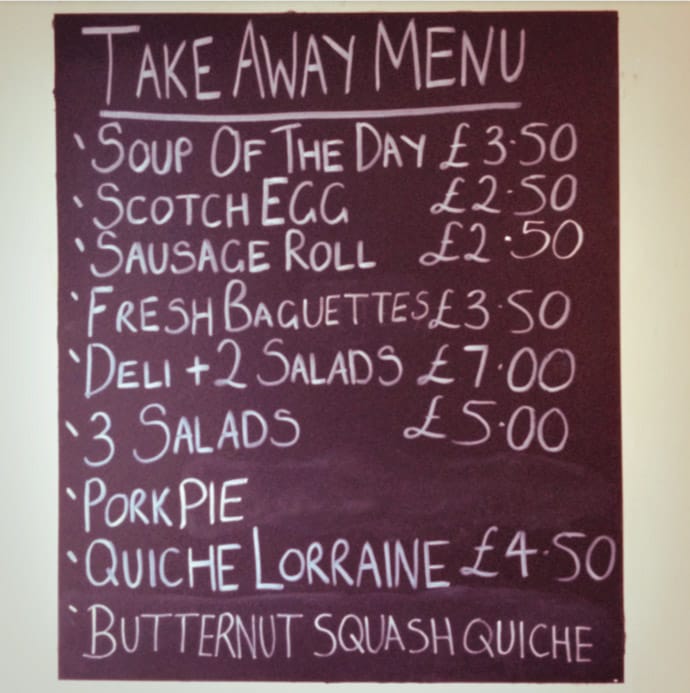 TAKE AWAY MENU
`SOUP OF THE DAY £3·50
`SCOTCH EGG £2·50
`SAUSAGE ROLL £2·50
`FRESH BAGUETTES £3·50
`DELI + 2 SALADS £7·00
`3 SALADS £5·00
`PORK PIE
`QUICHE LORRAINE £4·50
`BUTTERNUT SQUASH QUICHE